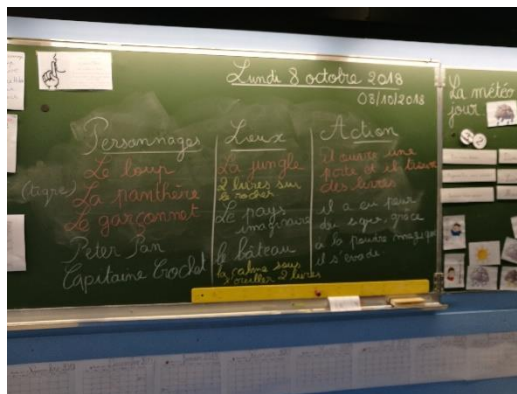 Lundi 8 octobre 2018
08/10/2018
La météo
jour
Personnages
Le loup
(tigre) La panthère
Le garçonnet
Peter Pan
Capitaine Crochet
Lieux
La jungle
2 livres sur
le rocher
Le pays
imaginaire
le bâteau
la calme sous
l'oreiller 2 livres
Action
il ouvre une
porte et il trouve
des livres
il a eu peur
du tigre, grâce
à la poudre magique
il s'évade